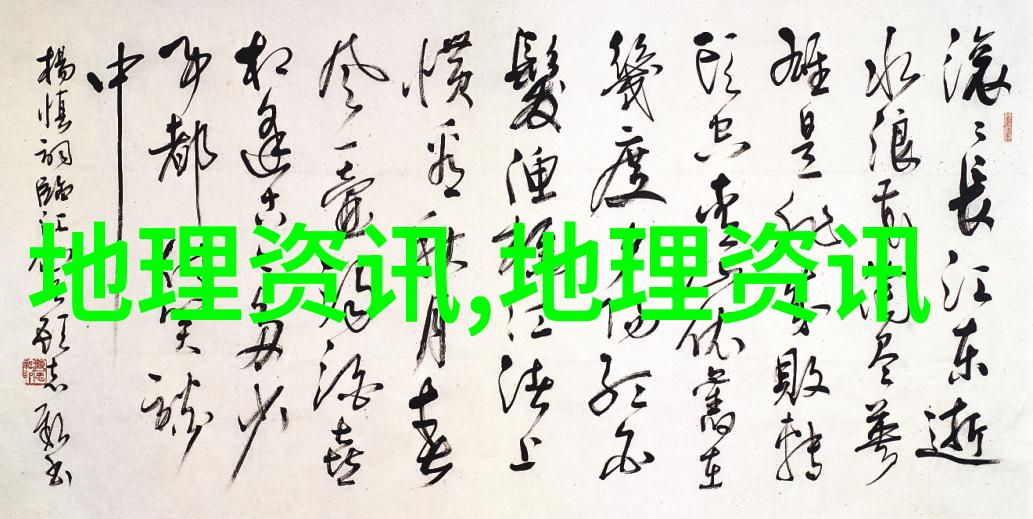 滚〻長江东逝
水浪花淘尽英
雄是非成敗轉
头空青山依舊在
幾度夕阳红白
髮渔樵江渚上
惯看秋月春
风一壶浊酒喜
相逢古今多少
事都付笑谈
中
楊慎词临江仙
地理资讯,地理资讯